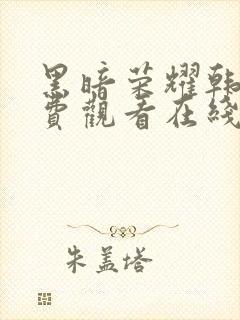 黑暗荣耀韩
费觀看在线
朱盖塔